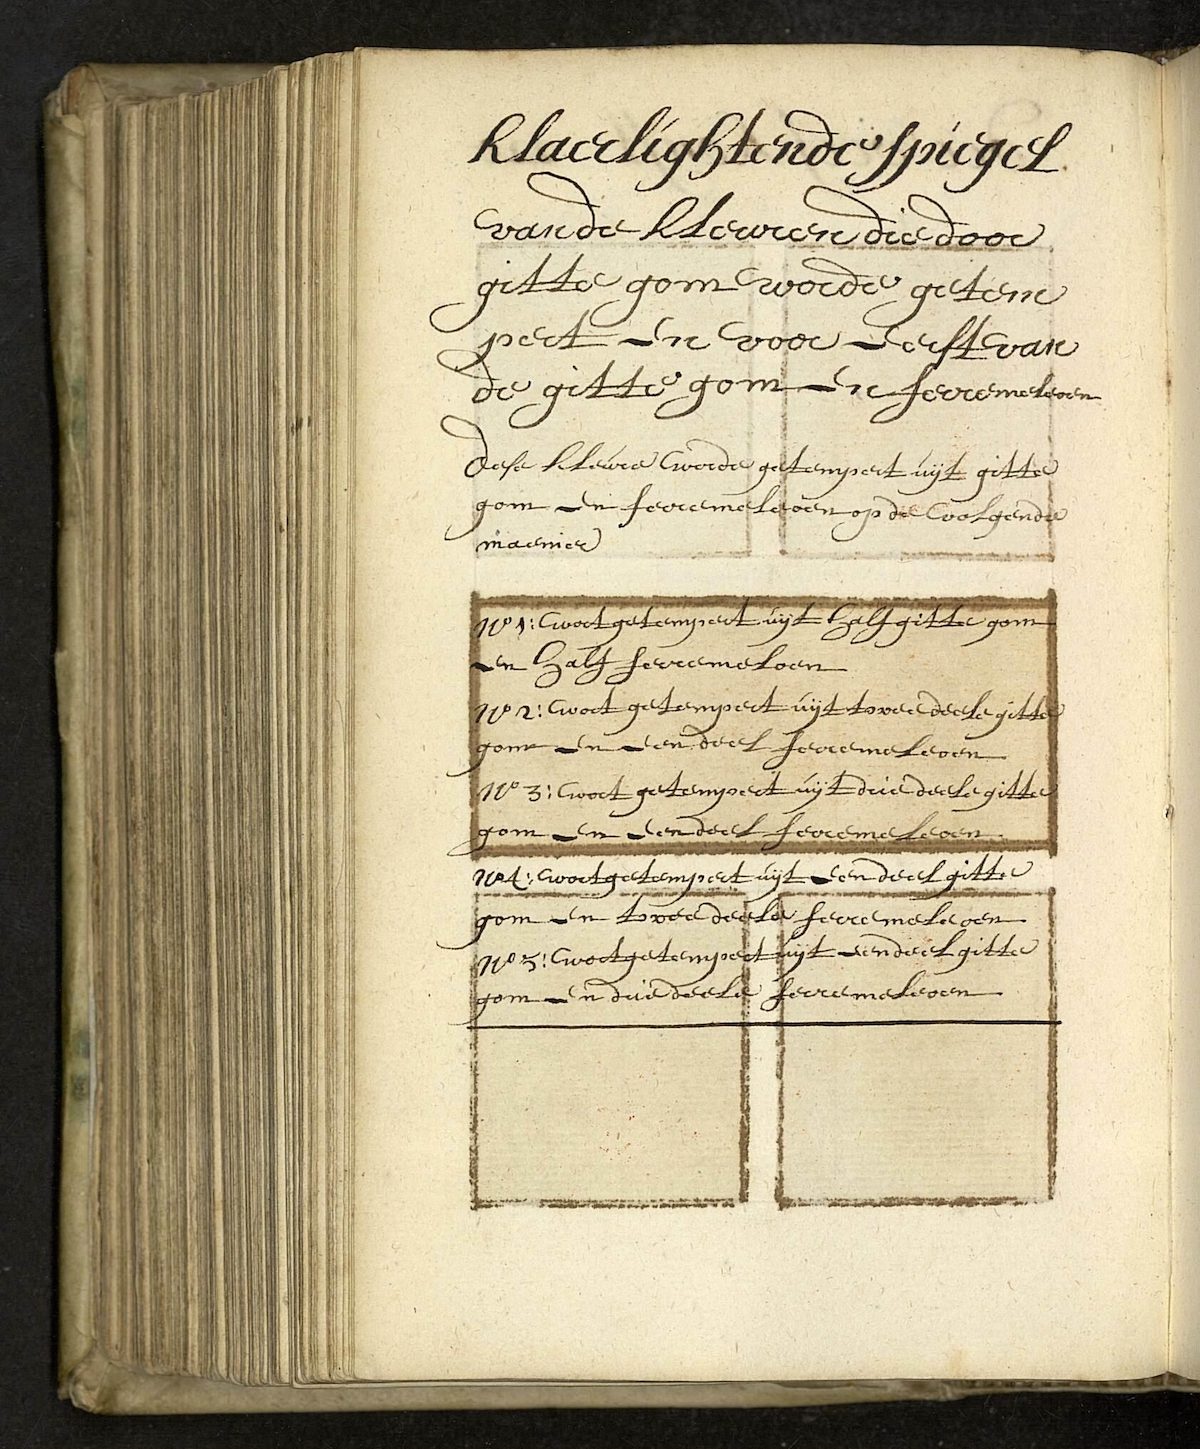 klaerlightende spiegel
vande kleuren die door
gitte gom worde getem
pert en voor eerst van
de gitte gom en ferremeleoen
dese kleure worde getempert uijt gitte
gom en ferremeleoen op de volgende
maenier
No 1: wort getempert uijt half gitte gom
en half ferremeloen
No 2: wort getempert uijt twee deele gitte
gom en een deel ferremeleoen
No 3: wort getempert uijt drie deele gitte
gom en een deel ferremeleoen
No 4: wort getempert uijt een deel gitte
gom en twee deele ferremeleoen
No 5: wort getempert uijt een deel gitte
gom en drie deele ferremeleoen